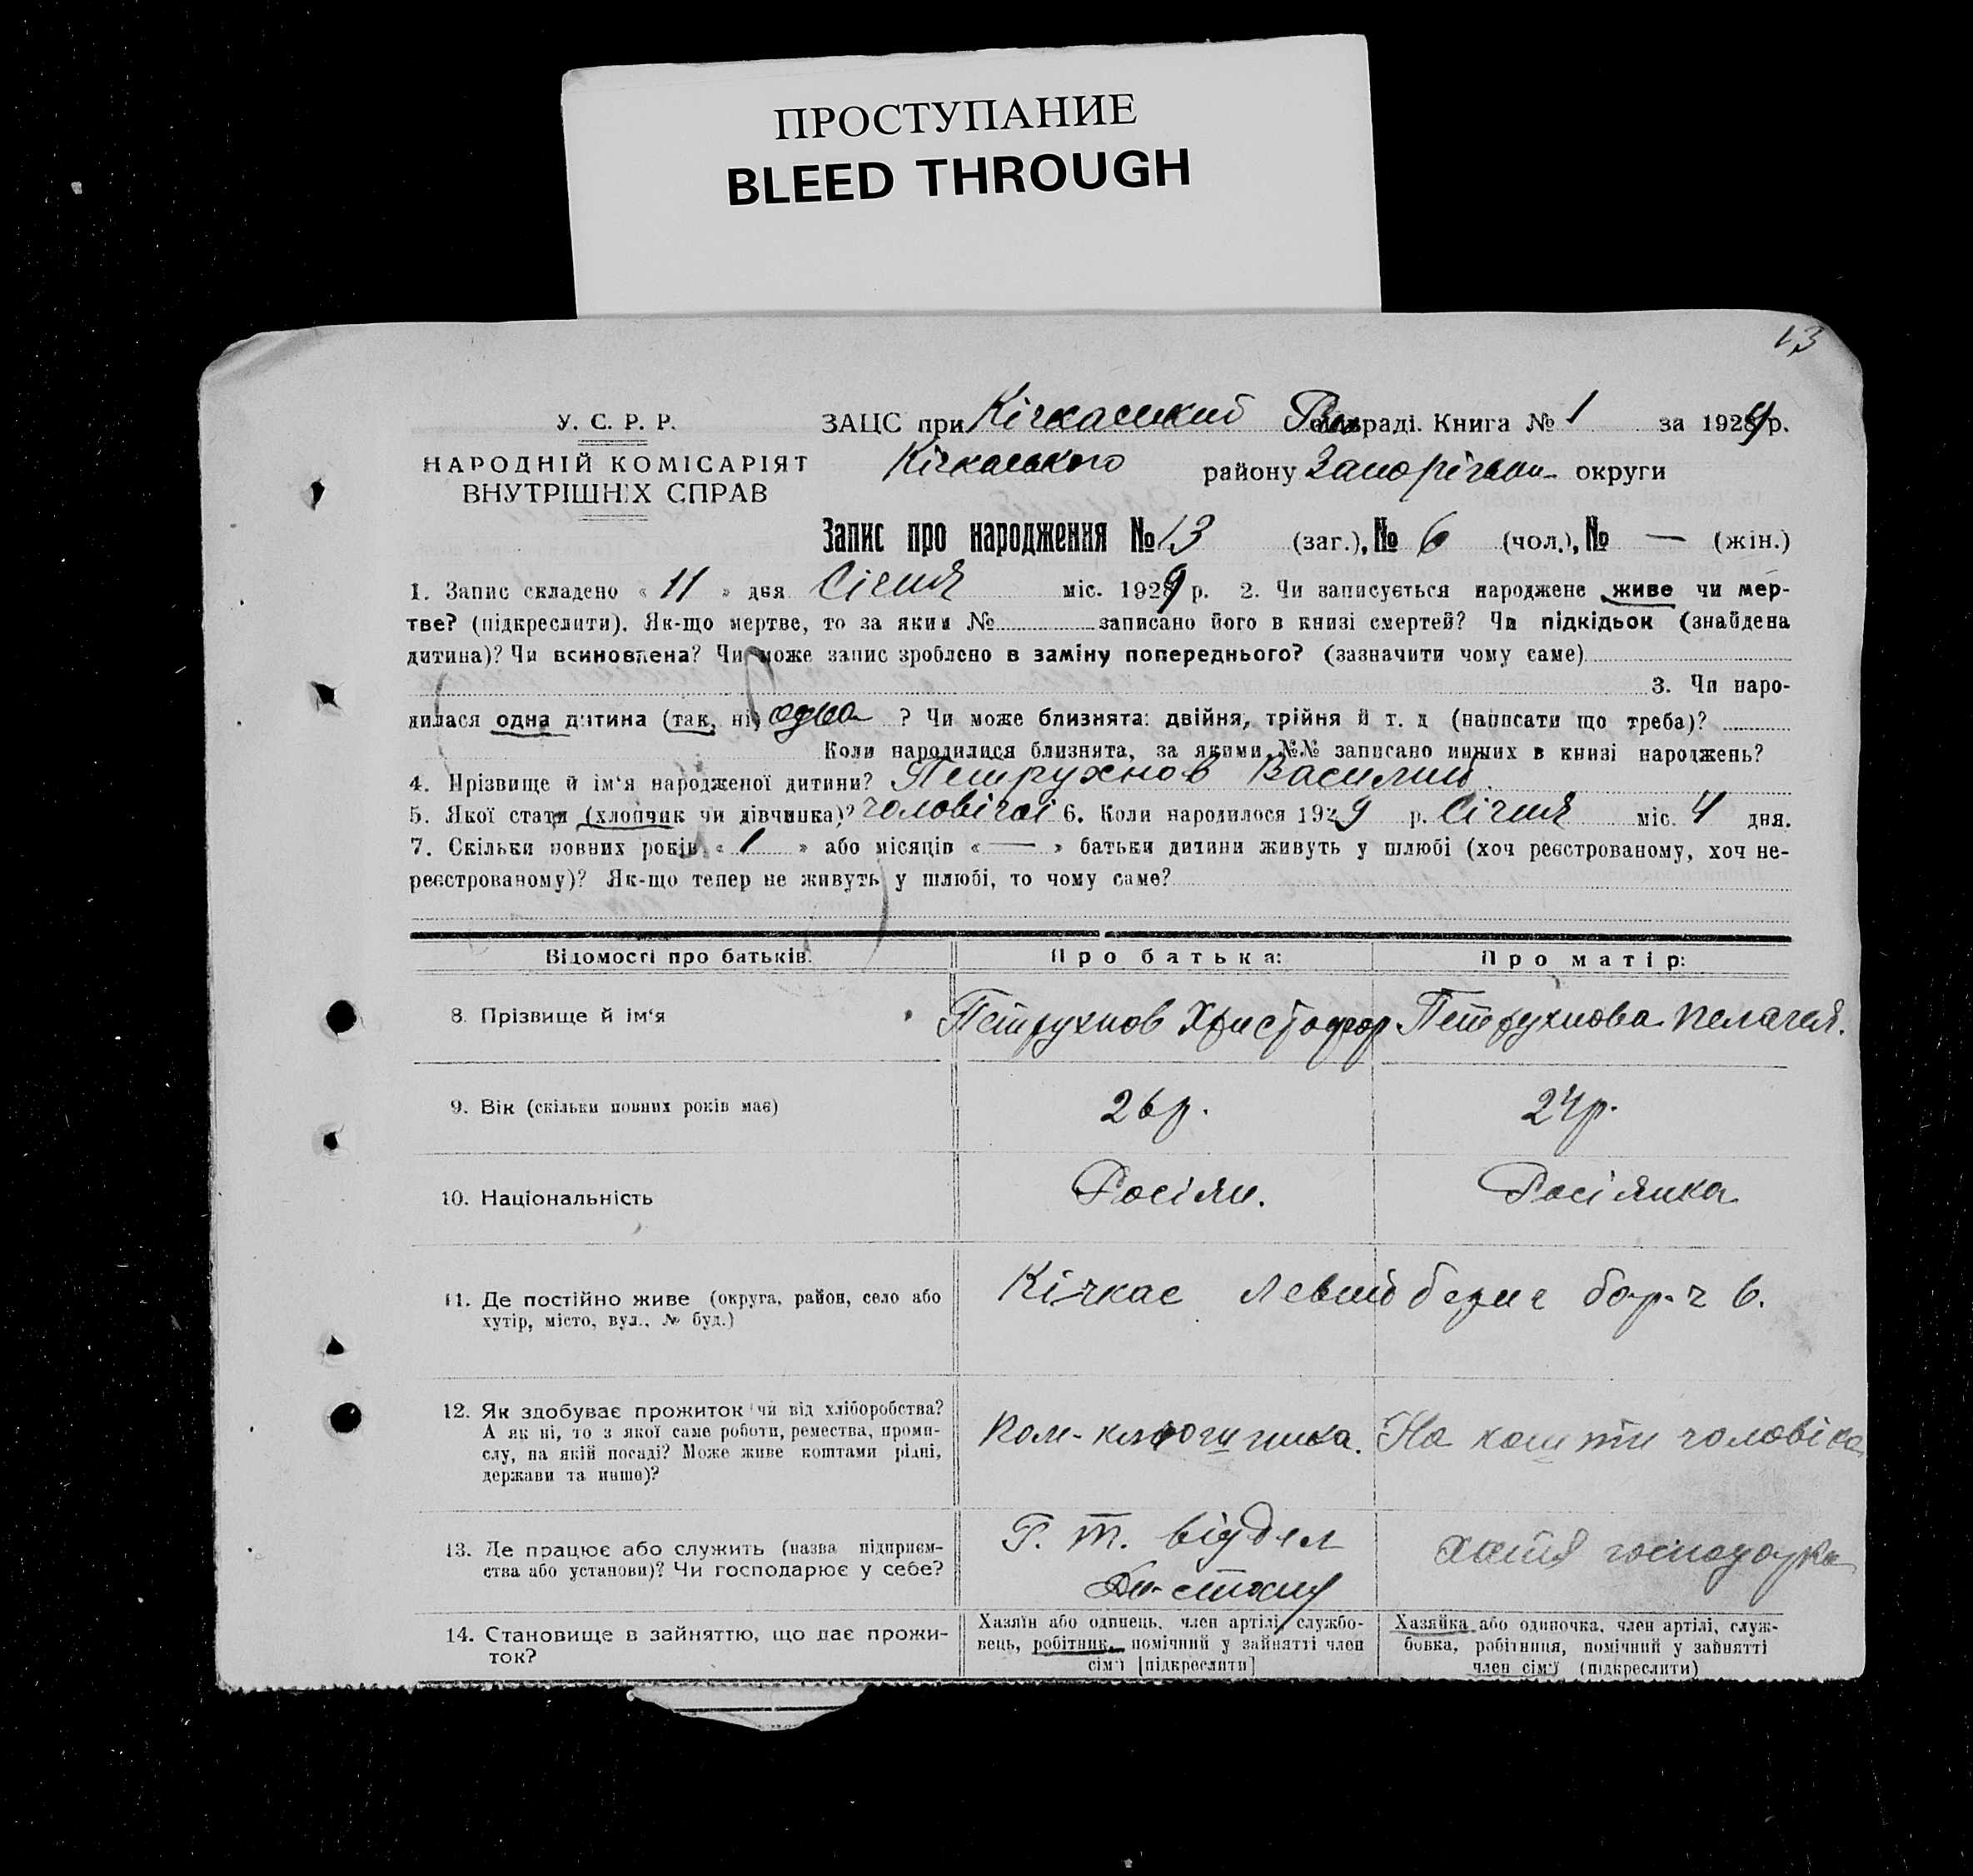 ПРОСТУПАНИЕ
BLEED THROUGH
13
У. С. Р. Р.
НАРОДНІЙ КОМІСАРІЯТ
ВНУТРІШНІХ СПРАВ
ЗАЦС при Кічкаський раді. Книга № 1 за 1929 р.
Кічкаського району Запорізьк округи
Запис про народження № 13 (заг.), № 6 (чол.), № — (жін.)
1. Запис складено « 11 » дня Січня міс. 1929 р. 2. Чи записується народжене живе чи мер-
тве? (підкреслити). Як-що мертве, то за яким № записано його в книзі смертей? Чи підкідьок (знайдена
дитина)? Чи всиновлена? Чи може запис зроблено в заміну попереднього? (зазначити чому саме)
3. Чи наро-
дилася одна дитина (так, ні) одна ? Чи може близнята: двійня, трійня й т. д (написати що треба)?
Коли народилися близнята, за якими №№ записано инших в книзі народжень?
4. Прізвище й ім'я народженої дитини? Петрухнов Василий
5. Якої стати (хлопчик чи дівчинка)? чоловічої 6. Коли народилося 1929 р. Січня міс. 4 дня.
7. Скільки повних років « 1 » або місяців « — » батьки дитини живуть у шлюбі (хоч реєстрованому, хоч не-
реєстрованому)? Як-що тепер не живуть у шлюбі, то чому саме?
Відомості про батьків: Про батька: Про матір:
8. Прізвище й ім'я Петрухнов Христофор Петрухнова Пелагея.
9. Вік (скільки повних років має) 26 р. 24 р.
10. Національність Росіян. Росіянка
11. Де постійно живе (округа, район, село або
хутір, місто, вул., № буд.)
Кічкас Левий берег бар. 6.
12. Як здобуває прожиток чи від хліборобства?
А як ні, то з якої саме роботи, ремества, проми-
слу, на якій посаді? Може живе коштами рідні,
держави та инше)?
Пом- На кошти чоловіка
13. Де працює або служить (назва підприєм-
ства або установи)? Чи господарює у себе?
Р. т. віддел
хатня господарка
14. Становище в зайняттю, що дає прожи-
ток?
Хазяїн або одинець, член артілі, службо-
вець, робітник, помічний у зайнятті член
сім'ї [підкреслити]
Хазяйка або одиночка, член артілі, служ-
бовка, робітниця, помічний у зайнятті
член сім'ї (підкреслити)